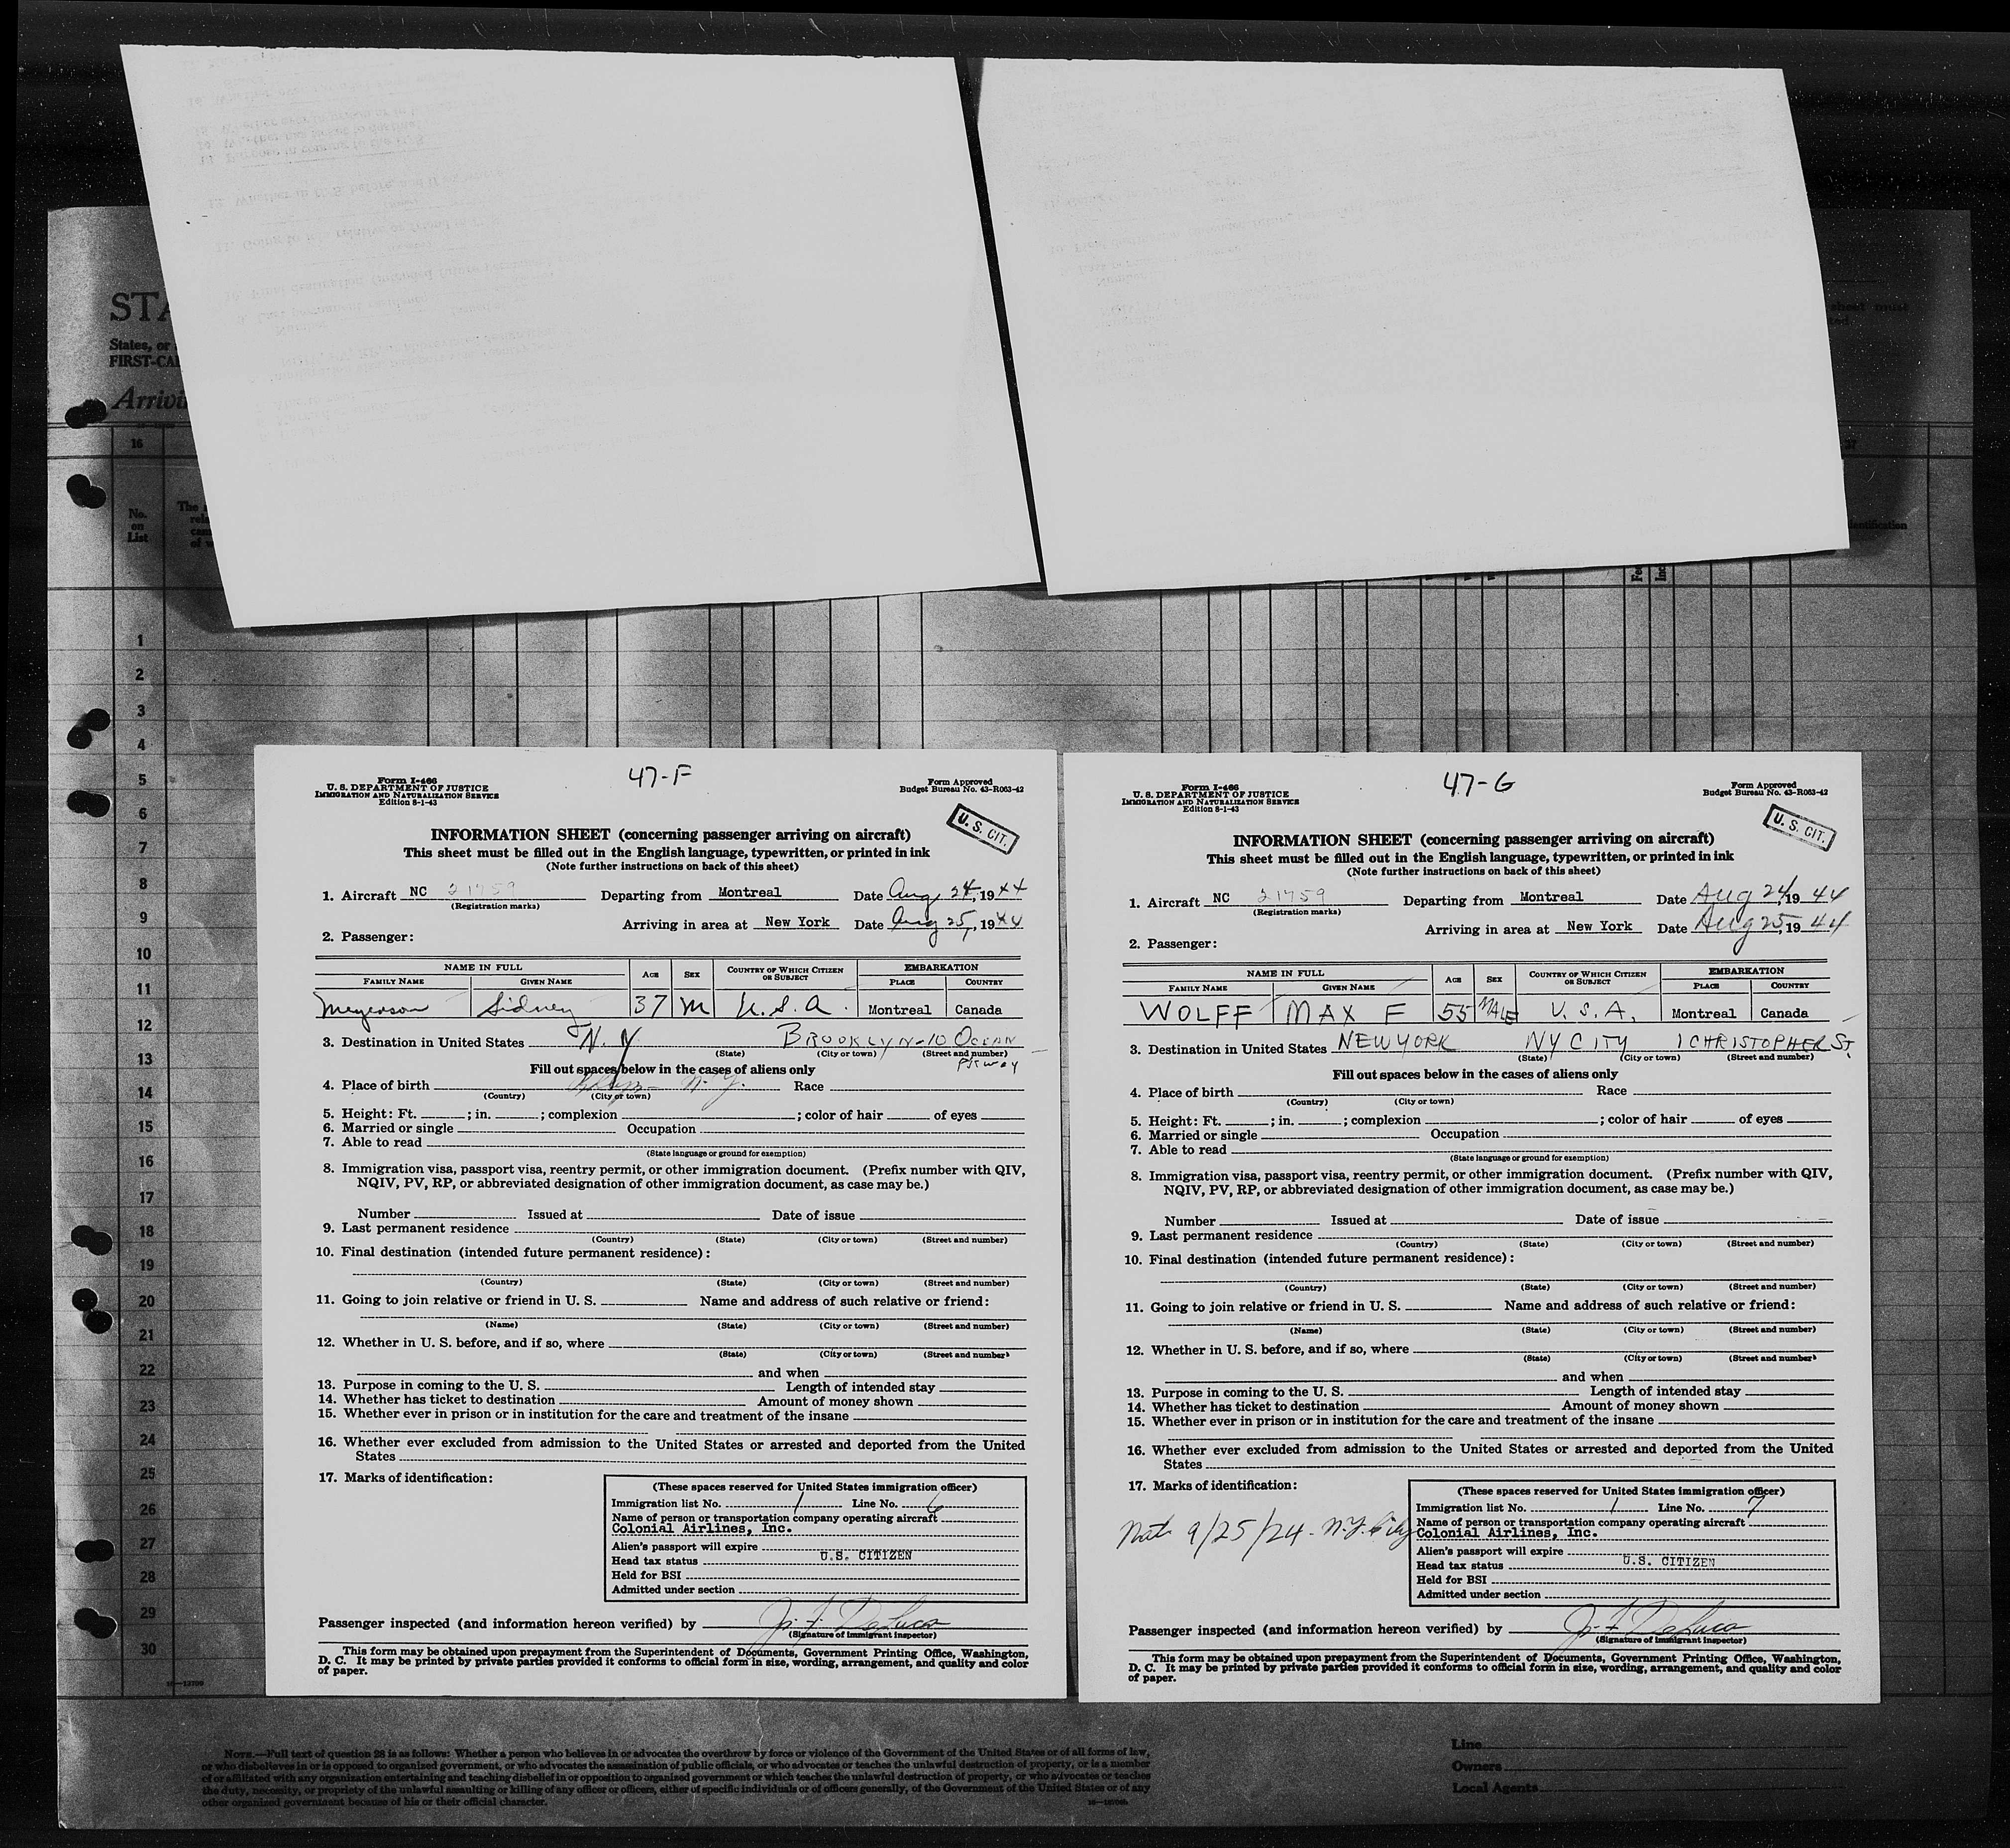 STA
States, or
FIRST-CA
Arrivi
16
No.
on
List
sheet must
1
2
3
4
5
6
7
8
9
10
11
12
13
14
15
16
17
18
19
20
21
22
23
24
25
26
27
28
29
30
47-F
Form I-466
U. S. DEPARTMENT OF JUSTICE
IMMIGRATION AND NATURALIZATION SERVICE
Edition 8-1-43
Form Approved
Budget Bureau No. 43-R063-42
U. S. CIT.
INFORMATION SHEET (concerning passenger arriving on aircraft)
This sheet must be filled out in the English language, typewritten, or printed in ink
(Note further instructions on back of this sheet)
1. Aircraft NC 21759 Departing from Montreal Date Aug 24, 1944
(Registration marks)
Arriving in area at New York Date Aug 25, 1944
2. Passenger:
NAME IN FULL AGE SEX COUNTRY OF WHICH CITIZEN OR SUBJECT EMBARKATION
FAMILY NAME GIVEN NAME PLACE COUNTRY
Meyerson Sidney 37 M U.S.A. Montreal Canada
3. Destination in United States N.Y BROOKLYN-10 OCEAN
(State) (City or town) (Street and number)
PKWAY
Fill out spaces below in the cases of aliens only
4. Place of birth N.Y. Race
(Country) (City or town)
5. Height: Ft. ; in. ; complexion ; color of hair of eyes
6. Married or single Occupation
7. Able to read
(State language or ground for exemption)
8. Immigration visa, passport visa, reentry permit, or other immigration document. (Prefix number with QIV,
NQIV, PV, RP, or abbreviated designation of other immigration document, as case may be.)
Number Issued at Date of issue
9. Last permanent residence
(Country) (State) (City or town) (Street and number)
10. Final destination (intended future permanent residence):
(Country) (State) (City or town) (Street and number)
11. Going to join relative or friend in U. S. Name and address of such relative or friend:
(Name) (State) (City or town) (Street and number)
12. Whether in U. S. before, and if so, where
(State) (City or town) (Street and number)
and when
13. Purpose in coming to the U. S. Length of intended stay
14. Whether has ticket to destination Amount of money shown
15. Whether ever in prison or in institution for the care and treatment of the insane
16. Whether ever excluded from admission to the United States or arrested and deported from the United
States
17. Marks of identification:
(These spaces reserved for United States immigration officer)
Immigration list No. 1 Line No. 6
Name of person or transportation company operating aircraft
Colonial Airlines, Inc.
Alien's passport will expire
Head tax status U.S. CITIZEN
Held for BSI
Admitted under section
Passenger inspected (and information hereon verified) by J. F. DeLuca
(Signature of immigrant inspector)
This form may be obtained upon prepayment from the Superintendent of Documents, Government Printing Office, Washington,
D. C. It may be printed by private parties provided it conforms to official form in size, wording, arrangement, and quality and color
of paper.
47-G
Form I-466
U. S. DEPARTMENT OF JUSTICE
IMMIGRATION AND NATURALIZATION SERVICE
Edition 8-1-43
Form Approved
Budget Bureau No. 43-R063-42
U. S. CIT.
INFORMATION SHEET (concerning passenger arriving on aircraft)
This sheet must be filled out in the English language, typewritten, or printed in ink
(Note further instructions on back of this sheet)
1. Aircraft NC 21759 Departing from Montreal Date Aug 24, 1944
(Registration marks)
Arriving in area at New York Date Aug 25, 1944
2. Passenger:
NAME IN FULL AGE SEX COUNTRY OF WHICH CITIZEN OR SUBJECT EMBARKATION
FAMILY NAME GIVEN NAME PLACE COUNTRY
WOLFF MAX F 55 MALE U.S.A. Montreal Canada
3. Destination in United States NEW YORK NY CITY 1 CHRISTOPHER ST.
(State) (City or town) (Street and number)
Fill out spaces below in the cases of aliens only
4. Place of birth Race
(Country) (City or town)
5. Height: Ft. ; in. ; complexion ; color of hair of eyes
6. Married or single Occupation
7. Able to read
(State language or ground for exemption)
8. Immigration visa, passport visa, reentry permit, or other immigration document. (Prefix number with QIV,
NQIV, PV, RP, or abbreviated designation of other immigration document, as case may be.)
Number Issued at Date of issue
9. Last permanent residence
(Country) (State) (City or town) (Street and number)
10. Final destination (intended future permanent residence):
(Country) (State) (City or town) (Street and number)
11. Going to join relative or friend in U. S. Name and address of such relative or friend:
(Name) (State) (City or town) (Street and number)
12. Whether in U. S. before, and if so, where
(State) (City or town) (Street and number)
and when
13. Purpose in coming to the U. S. Length of intended stay
14. Whether has ticket to destination Amount of money shown
15. Whether ever in prison or in institution for the care and treatment of the insane
16. Whether ever excluded from admission to the United States or arrested and deported from the United
States
17. Marks of identification:
Nat. 9/25/24 - N.Y. City
(These spaces reserved for United States immigration officer)
Immigration list No. 1 Line No. 7
Name of person or transportation company operating aircraft
Colonial Airlines, Inc.
Alien's passport will expire
Head tax status U.S. CITIZEN
Held for BSI
Admitted under section
Passenger inspected (and information hereon verified) by J. F. DeLuca
(Signature of immigrant inspector)
This form may be obtained upon prepayment from the Superintendent of Documents, Government Printing Office, Washington,
D. C. It may be printed by private parties provided it conforms to official form in size, wording, arrangement, and quality and color
of paper.
NOTE.—Full text of question 28 is as follows: Whether a person who believes in or advocates the overthrow by force or violence of the Government of the United States or of all forms of law,
or who disbelieves in or is opposed to organized government, or who advocates the assassination of public officials, or who advocates or teaches the unlawful destruction of property, or is a member
of or affiliated with any organization entertaining and teaching disbelief in or opposition to organized government or which teaches the unlawful destruction of property, or who advocates or teaches
the duty, necessity, or propriety of the unlawful assaulting or killing of any officer or officers, either of specific individuals or of officers generally, of the Government of the United States or of any
other organized government because of his or their official character.
Line
Owners
Local Agents